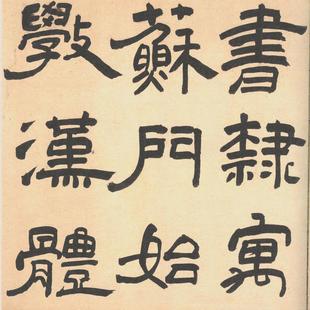 書隸寓
蘇門始
斆漢體